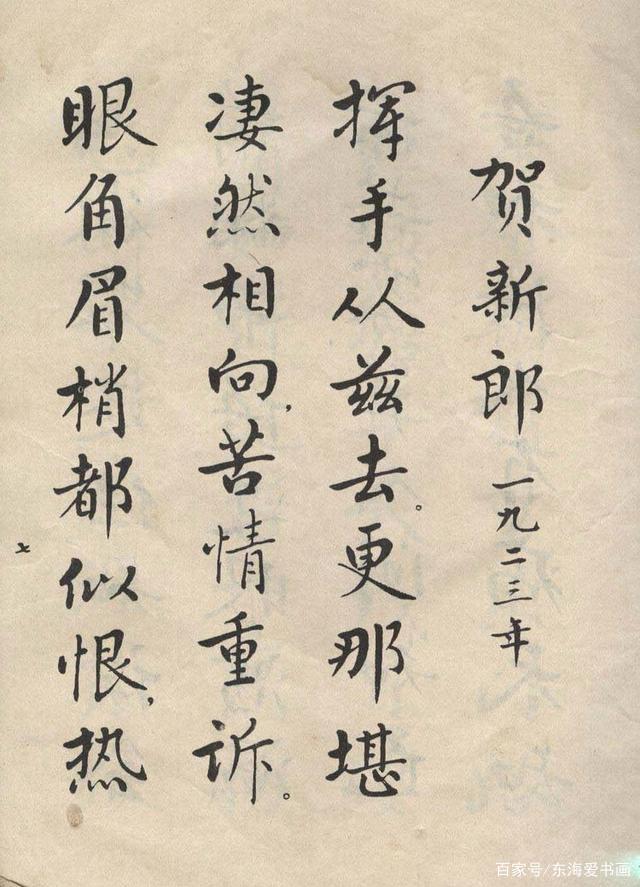 贺新郎 一九二三年
挥手从兹去。更那堪
凄然相向,苦情重诉。
眼角眉梢都似恨,热
七
百家号/东海爱书画